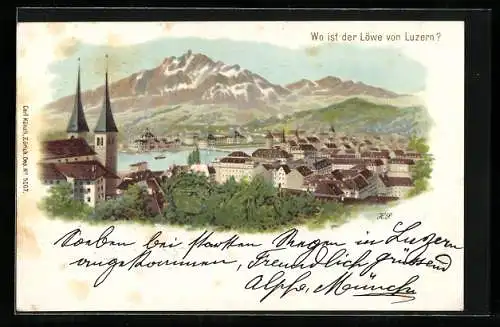 Wo ist der Löwe von Luzern?
Carl Künzli, Zürich, Dep. Nº 5207.
Soeben bei starkem Regen in Luzern
angekommen, Freundlich grüssend
Alph.,